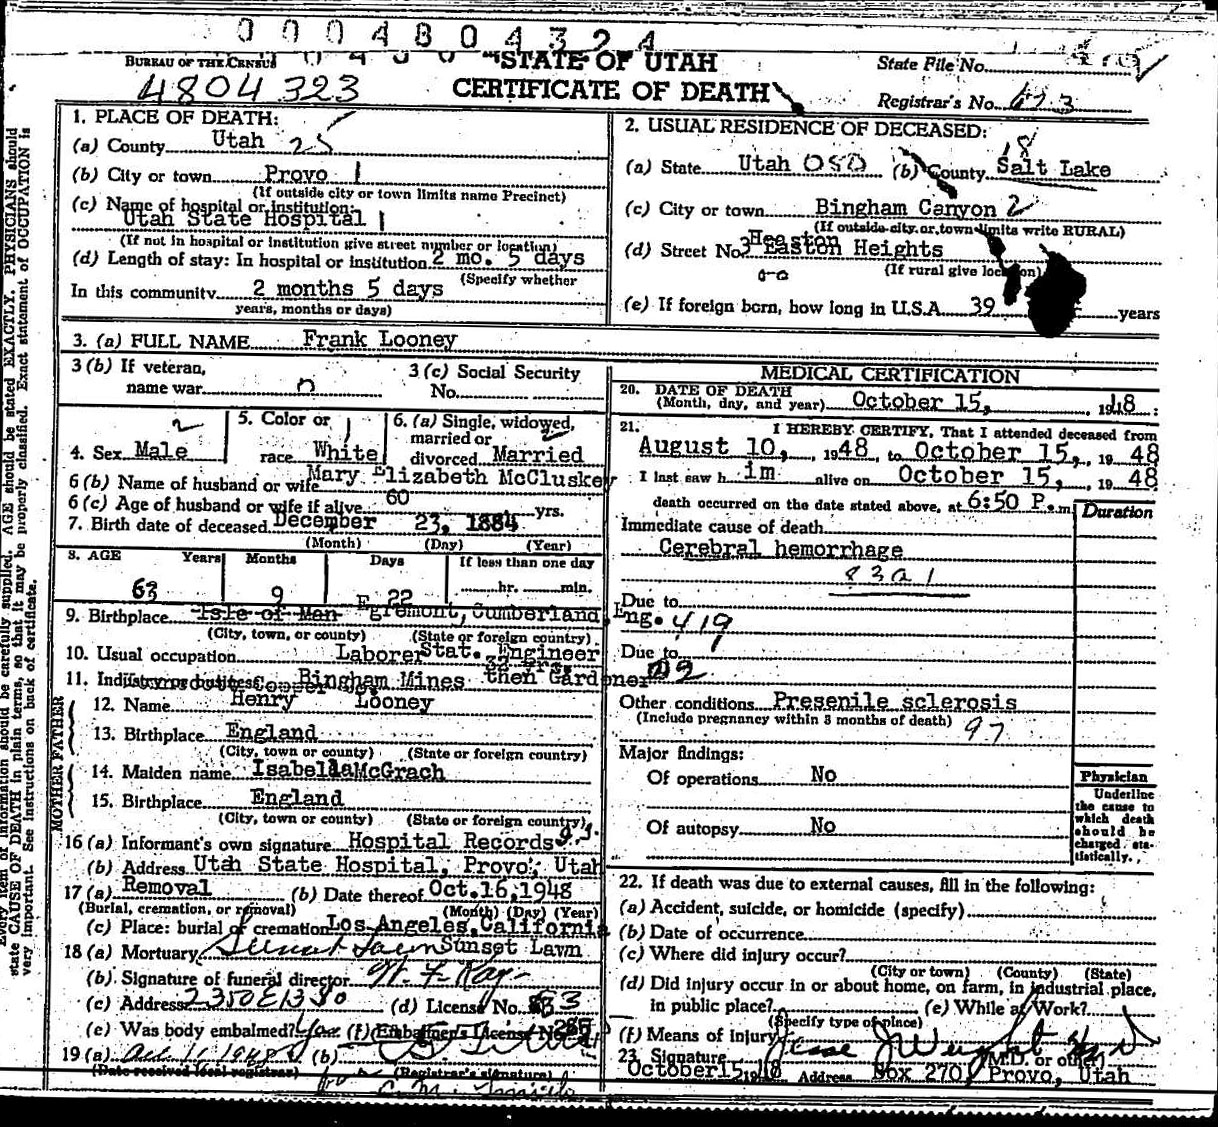 00004804324
BUREAU OF THE CENSUS
STATE OF UTAH
State File No.
4804323
CERTIFICATE OF DEATH
Registrar's No. 673
1. PLACE OF DEATH:
(a) County Utah 25
(b) City or town Provo 1
(If outside city or town limits name Precinct)
(c) Name of hospital or institution:
Utah State Hospital 1
(If not in hospital or institution give street number or location)
(d) Length of stay: In hospital or institution 2 mo. 5 days
(Specify whether
In this community 2 months 5 days
years, months or days)
2. USUAL RESIDENCE OF DECEASED:
18
(a) State Utah 050 (b) County Salt Lake
(c) City or town Bingham Canyon 2
(If outside city or town limits write RURAL)
Heaston
(d) Street No. 3 Easton Heights
(If rural give location)
(e) If foreign born, how long in U.S.A. 39 years
3. (a) FULL NAME Frank Looney
3 (b) If veteran, name war
3 (c) Social Security No.
4. Sex Male 2
5. Color or race White 1
6. (a) Single, widowed, married or divorced Married 2
6 (b) Name of husband or wife Mary Elizabeth McCluskey
6 (c) Age of husband or wife if alive 60 yrs.
7. Birth date of deceased December 23, 1884
(Month) (Day) (Year)
8. AGE Years Months Days If less than one day
63 9 22 hr. min.
9. Birthplace Isle of Man Egremont, Cumberland, Eng.
(City, town, or county) (State or foreign country)
10. Usual occupation Laborer Stat. Engineer
32 yrs.
11. Industry or business Copper Bingham Mines then Gardener
MOTHER FATHER
12. Name Henry Looney
13. Birthplace England
(City, town or county) (State or foreign country)
14. Maiden name Isabella McGrach
15. Birthplace England
(City, town or county) (State or foreign country)
16 (a) Informant's own signature Hospital Records
(b) Address Utah State Hospital, Provo, Utah
17 (a) Removal (b) Date thereof Oct. 16, 1948
(Burial, cremation, or removal) (Month) (Day) (Year)
(c) Place: burial or cremation Los Angeles, California
18 (a) Mortuary Sunset Lawn Sunset Lawn
(b) Signature of funeral director
(c) Address 2350 E 13 So (d) License No.
(e) Was body embalmed? Yes (f) Embalmer's License No.
19 (a) (b)
(Date received local registrar) (Registrar's signature)
MEDICAL CERTIFICATION
20. DATE OF DEATH
(Month, day, and year) October 15, 1948
21. I HEREBY CERTIFY, That I attended deceased from
August 10, 1948, to October 15, 1948
I last saw him alive on October 15, 1948
death occurred on the date stated above, at 6:50 P.m.
Duration
Immediate cause of death
Cerebral hemorrhage
83a1
Due to
419
Due to
Other conditions Presenile sclerosis
(Include pregnancy within 3 months of death) 97
Major findings:
Of operations No
Of autopsy No
Physician
Underline
the cause to
which death
should be
charged sta-
tistically.
22. If death was due to external causes, fill in the following:
(a) Accident, suicide, or homicide (specify)
(b) Date of occurrence
(c) Where did injury occur?
(City or town) (County) (State)
(d) Did injury occur in or about home, on farm, in industrial place,
in public place? (e) While at Work?
(Specify type of place)
(f) Means of injury
23. Signature
(M.D. or other)
October 15, 1948 Address Box 270, Provo, Utah
Every item of information should be carefully supplied. AGE should be stated EXACTLY. PHYSICIANS should
state CAUSE OF DEATH in plain terms, so that it may be properly classified. Exact statement of OCCUPATION is
very important. See instructions on back of certificate.